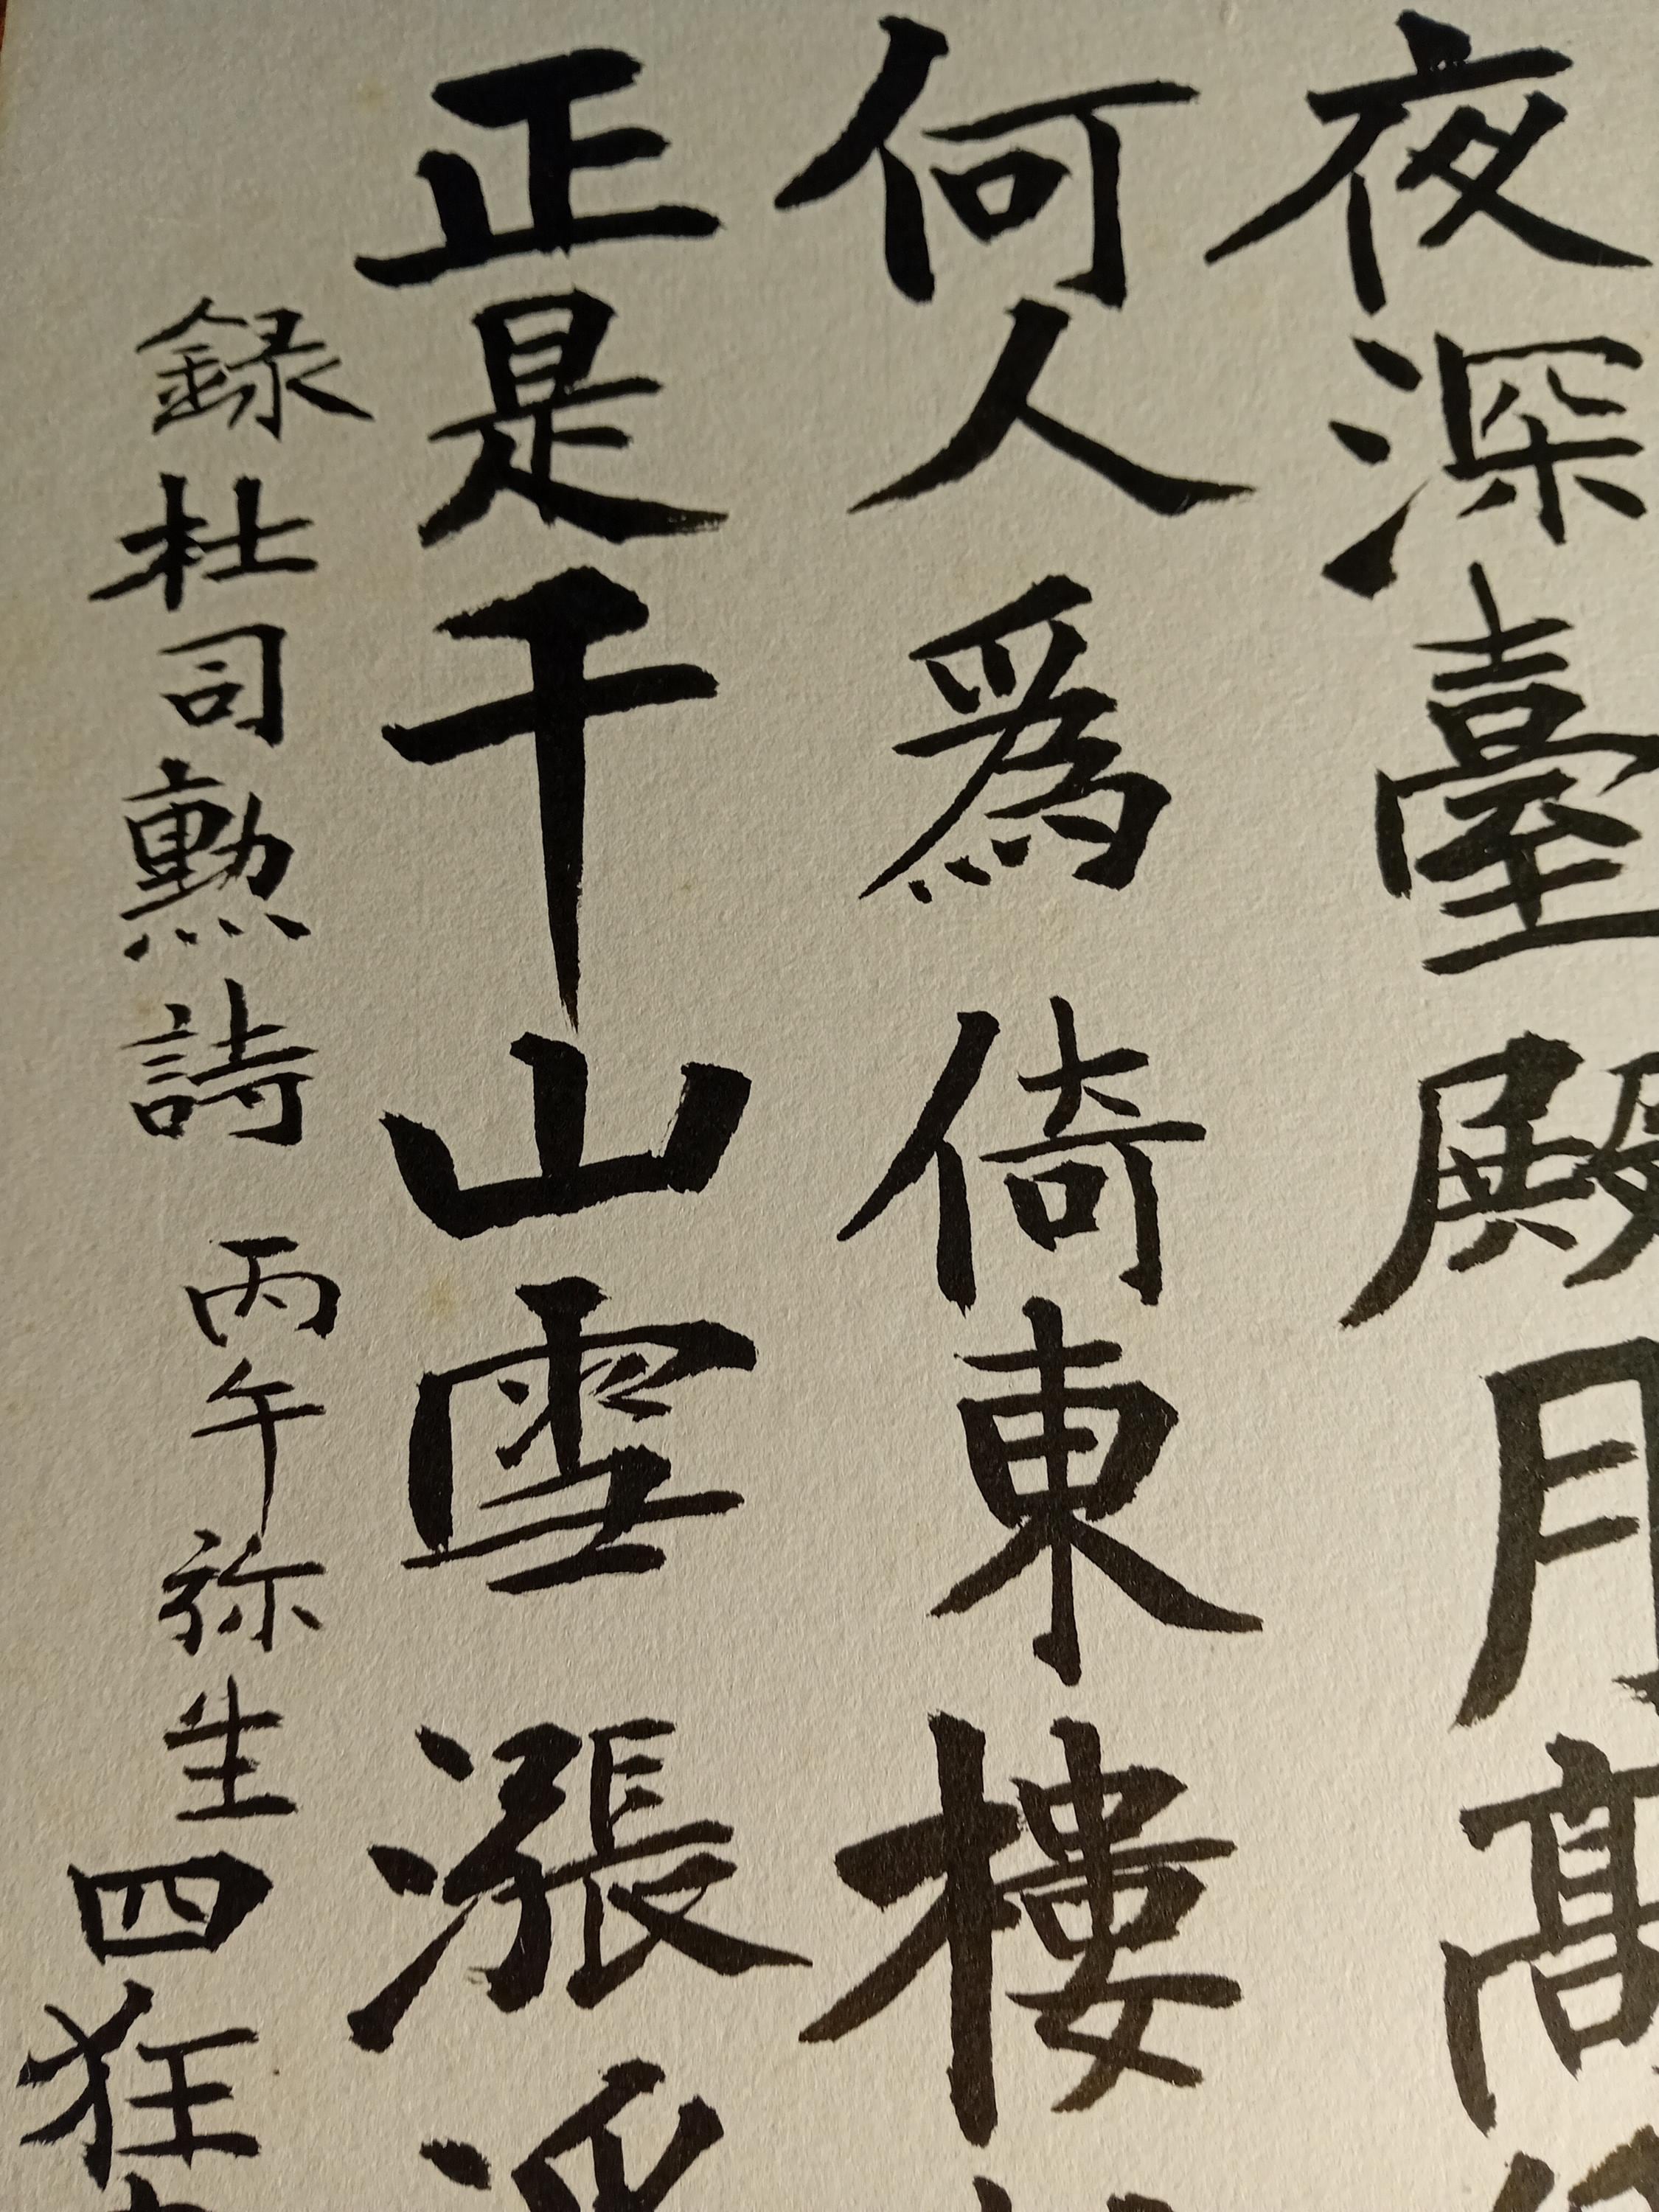 夜深臺殿月高
何人為倚東樓
正是千山雪漲
録杜司勲詩 丙午祢生 四狂